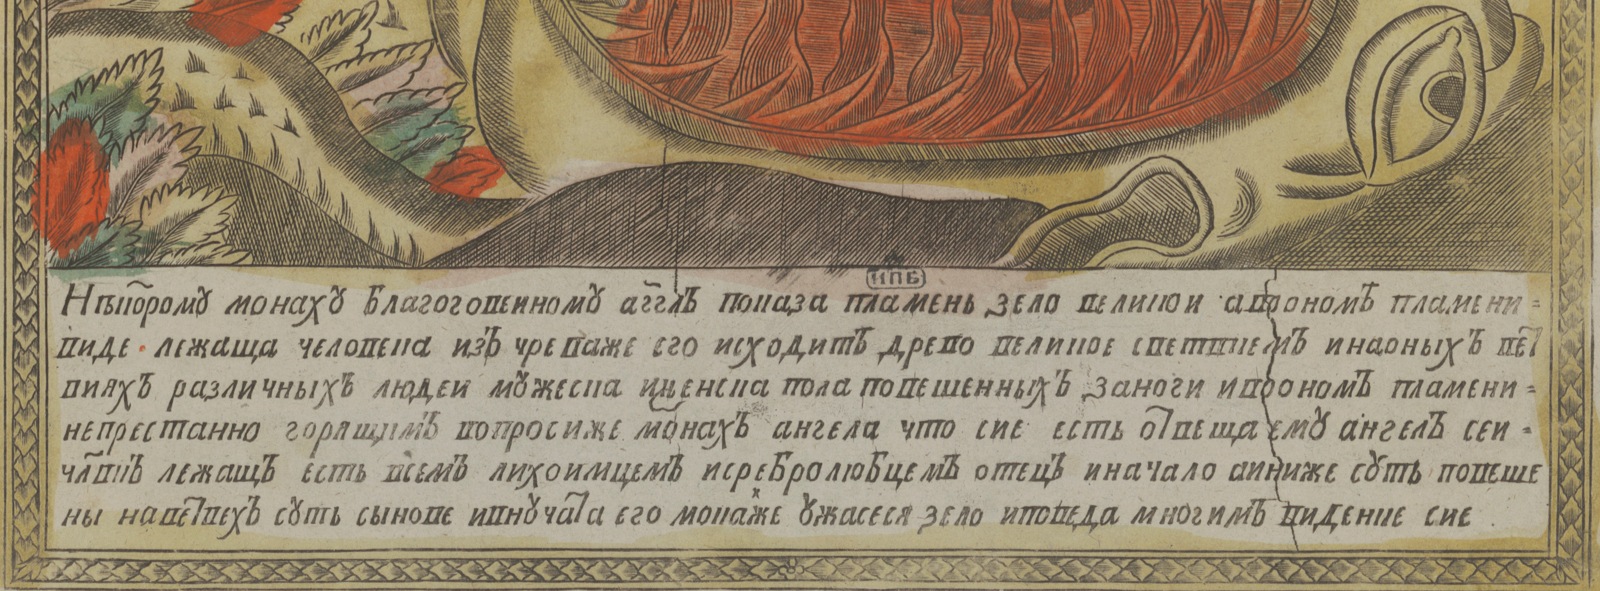 ИПБ
Нѣкоромꙋ монахꙋ благоговеиномꙋ агглъ показа пламень зело великои авоономъ пламени-
виде лежаща человека изъ чреваже его исходитъ древо великое светвиемъ инаоныхъ вет
вияхъ различныхъ людеи мꙋжеска иженска пола повешенныхъ заноги ивоономъ пламени-
непрестанно горящимъ вопросиже монахъ ангела что сие есть отвеща емꙋ ангелъ сеи-
члвкъ лежащъ есть всемъ лихоимцемъ исребролюбцемъ отецъ иначало аиниже сꙋть повеше
ны наветвехъ сꙋть сынове ивнꙋчата его монахже ꙋжасеся зело иповеда многимъ видение сие